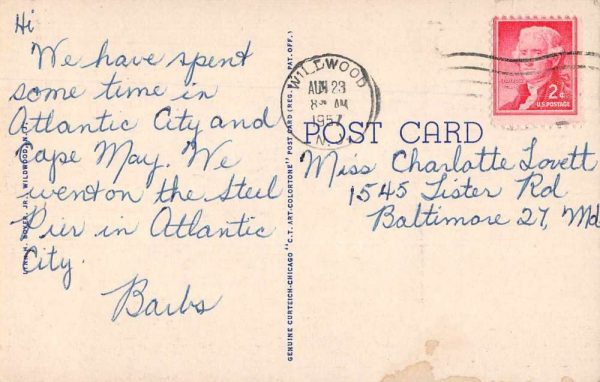 Hi
We have spent
some time in
Atlantic City and
Cape May. We
went on the Steel
Pier in Atlantic
City.
Barbs
WILDWOOD
AUG 23
8 AM
1957
N.J.
2¢
U.S. POSTAGE
POST CARD
Miss Charlotte Lovett
1545 Lister Rd
Baltimore 27, Md
GENUINE CURTEICH-CHICAGO "C.T. ART-COLORTONE" POST CARD (REG. U.S. PAT. OFF.)
HOVER, JR., WILDWOOD, N.J.